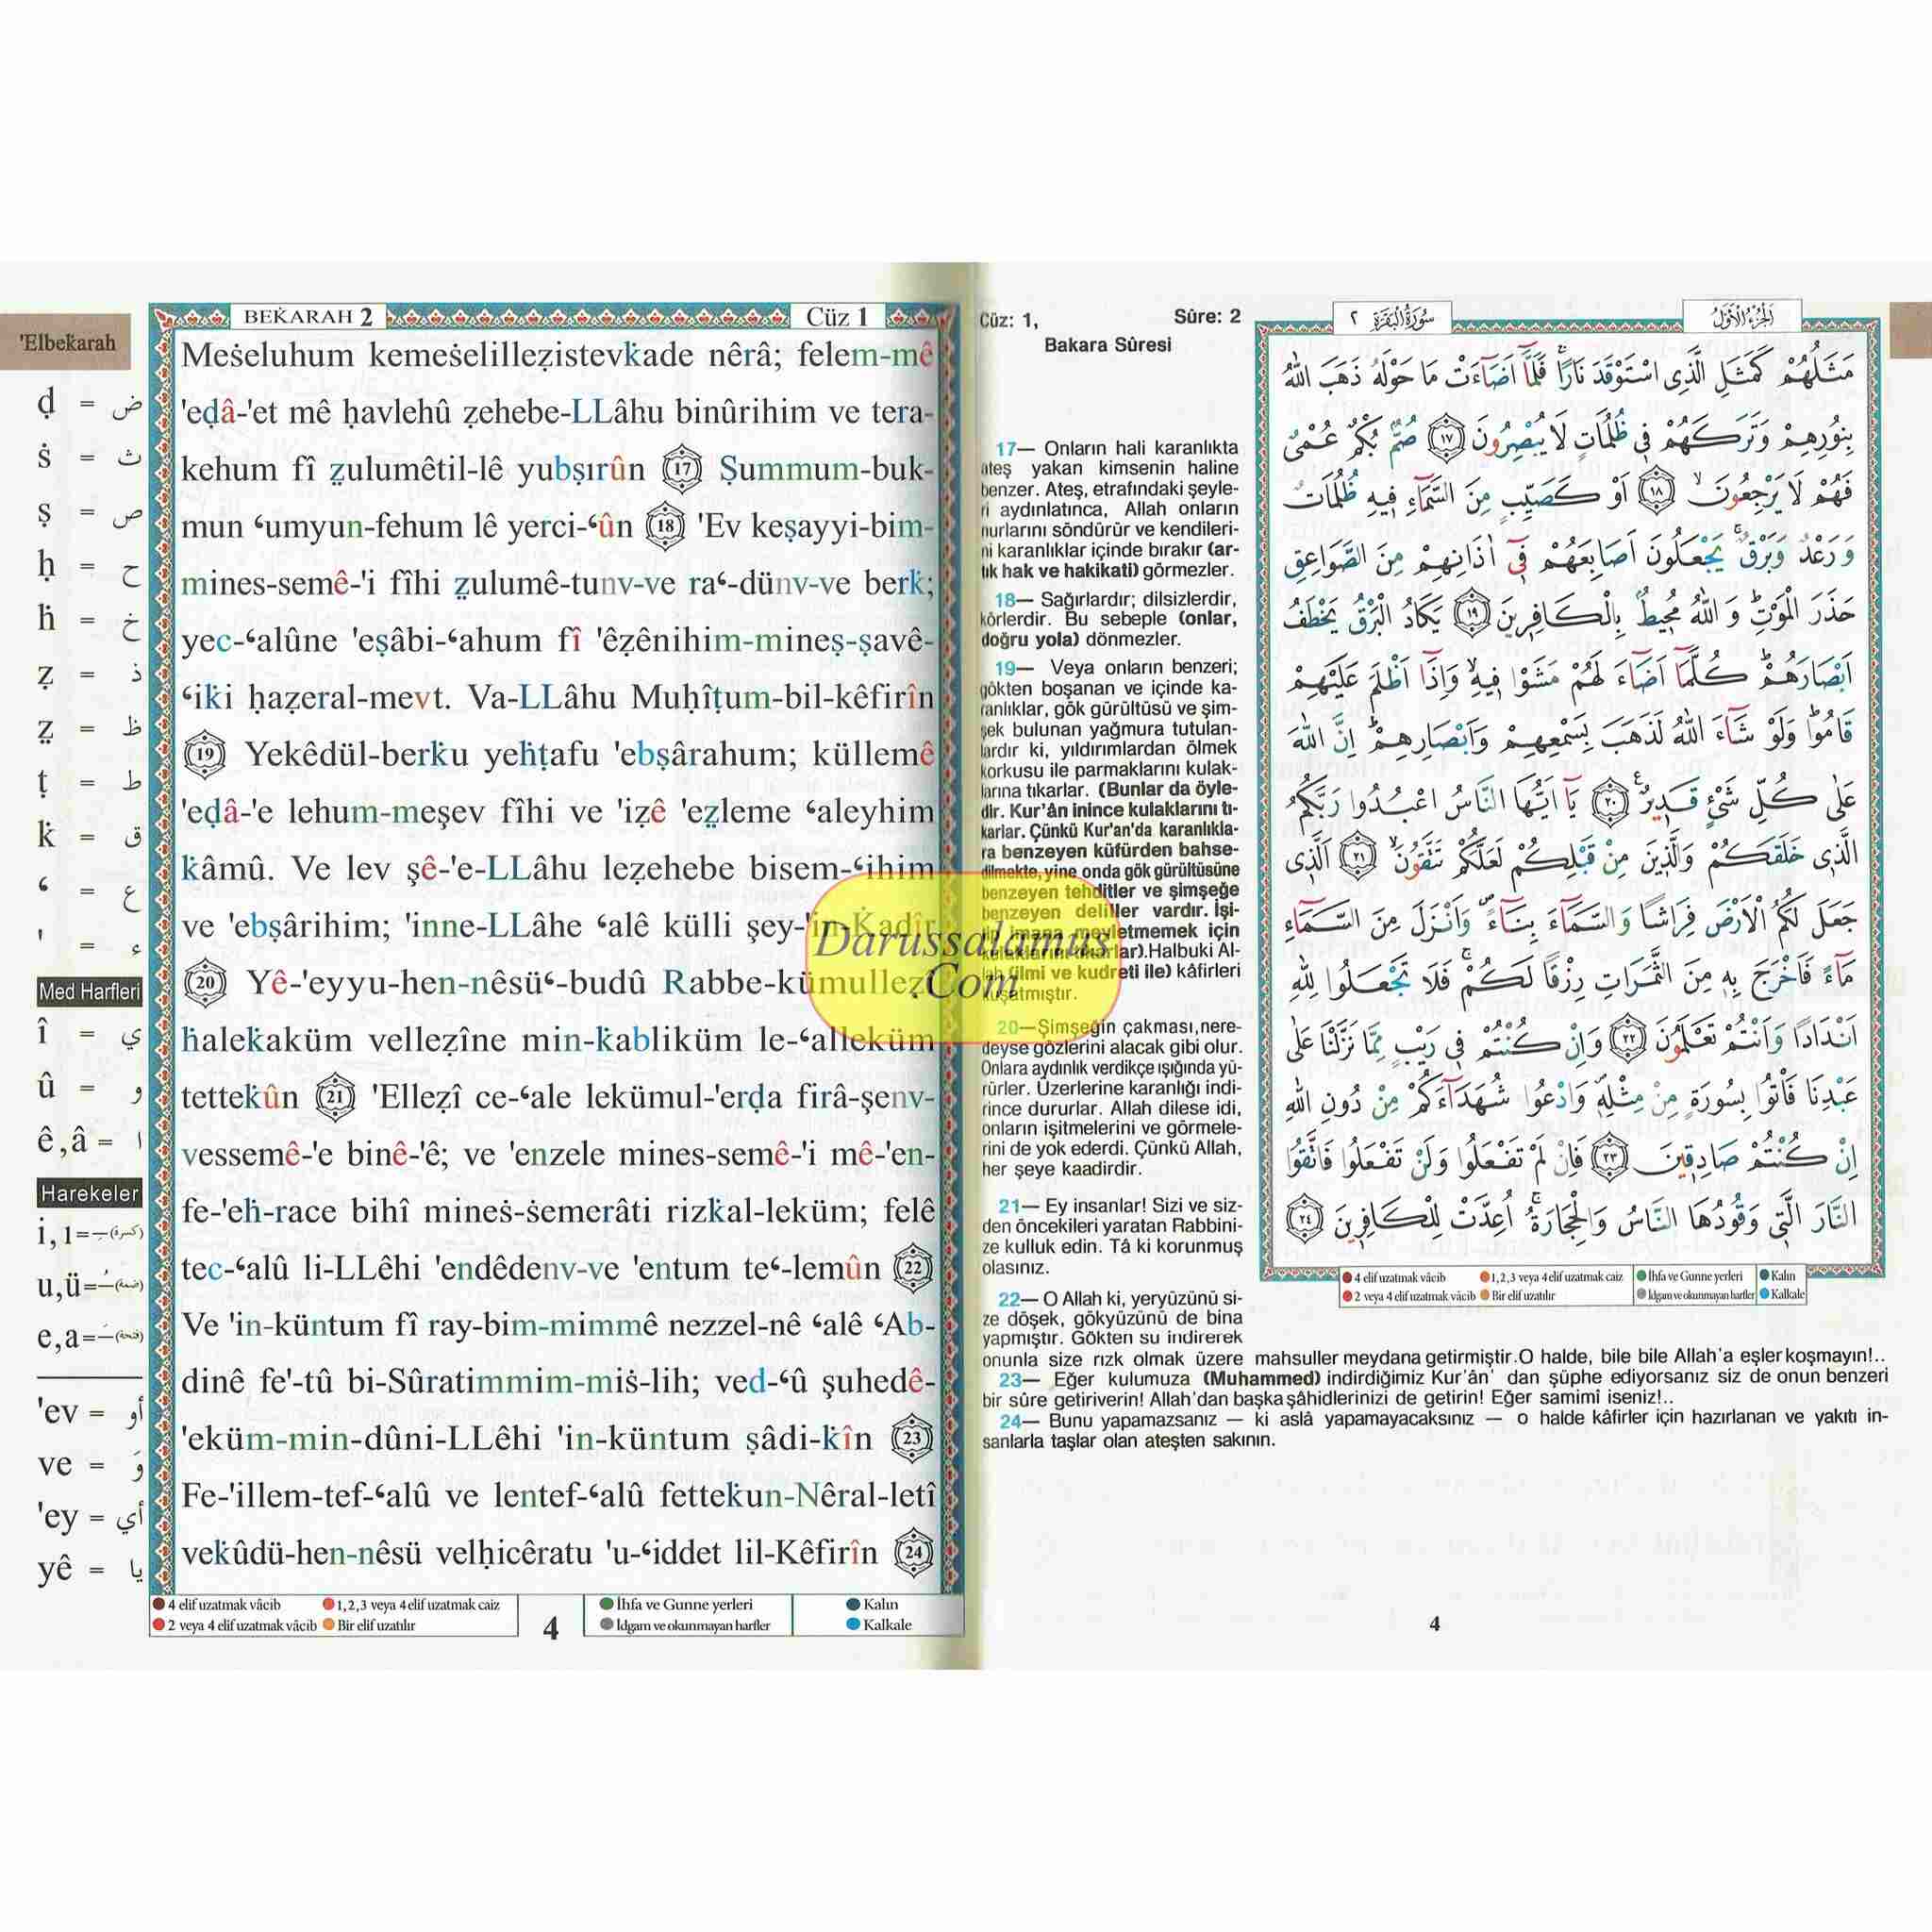 'Elbeḱarah
ḍ = ض
ṡ = ث
ṣ = ص
ḥ = ح
ḣ = خ
ẓ = ذ
ẓ̤ = ظ
ṭ = ط
ḱ = ق
ʻ = ع
' = ء
Med Harfleri
î = ي
û = و
ê,â = ا
Harekeler
i,ı=ـِ(كسرة)
u,ü=ـُ(ضمة)
e,a=ـَ(فتحة)
'ev = أَو
ve = وَ
'ey = أَي
yê = يا
BEḰARAH 2 Cüz 1
Meṡeluhum kemeṡelilleẓistevḱade nêrâ; felem-mê
'eḍâ-'et mê ḥavlehû ẓehebe-LLâhu binûrihim ve tera-
kehum fî ẓ̤ulumêtil-lê yubṣırûn 17 Ṣummum-buk-
mun ʻumyun-fehum lê yerci-ʻûn 18 'Ev keṣayyi-bim-
mines-semê-'i fîhi ẓ̤ulumê-tunv-ve raʻ-dünv-ve berḱ;
yec-ʻalûne 'eṣâbi-ʻahum fî 'êẓênihim-mineṣ-ṣavê-
ʻiḱi ḥaẓeral-mevt. Va-LLâhu Muḥîṭum-bil-kêfirîn
19 Yekêdül-berḱu yeḣṭafu 'ebṣârahum; küllemê
'eḍâ-'e lehum-meşev fîhi ve 'iẓê 'eẓ̤leme ʻaleyhim
ḱâmû. Ve lev şê-'e-LLâhu leẓehebe bisem-ʻihim
ve 'ebṣârihim; 'inne-LLâhe ʻalê külli şey-'in-Ḱadîr
20 Yê-'eyyu-hen-nêsüʻ-budû Rabbe-kümulleẓ
ḣaleḱaküm velleẓîne min-ḱabliküm le-ʻalleküm
tetteḱûn 21 'Elleẓî ce-ʻale lekümul-'erḍa firâ-şenv-
vessemê-'e binê-'ê; ve 'enzele mines-semê-'i mê-'en-
fe-'eḣ-race bihî mineṡ-ṡemerâti rizḱal-leküm; felê
tec-ʻalû li-LLêhi 'endêdenv-ve 'entum teʻ-lemûn 22
Ve 'in-küntum fî ray-bim-mimmê nezzel-nê ʻalê ʻAb-
dinê fe'-tû bi-Sûratimmim-miṡ-lih; ved-ʻû şuhedê-
'eküm-min-dûni-LLêhi 'in-küntum ṣâdi-ḱîn 23
Fe-'illem-tef-ʻalû ve lentef-ʻalû fetteḱun-Nêral-letî
veḱûdü-hen-nêsü velḥicêratu 'u-ʻiddet lil-Kêfirîn 24
4 elif uzatmak vâcib 1,2,3 veya 4 elif uzatmak caiz İhfa ve Gunne yerleri Kalın
2 veya 4 elif uzatmak vâcib Bir elif uzatılır 4 İdgam ve okunmayan harfler Kalkale
Cüz: 1, Sûre: 2
Bakara Sûresi
17— Onların hali karanlıkta
ateş yakan kimsenin haline
benzer. Ateş, etrafındaki şeyle-
ri aydınlatınca, Allah onların
nurlarını söndürür ve kendileri-
ni karanlıklar içinde bırakır (ar-
tık hak ve hakikati) görmezler.
18— Sağırlardır; dilsizlerdir,
körlerdir. Bu sebeple (onlar,
doğru yola) dönmezler.
19— Veya onların benzeri;
gökten boşanan ve içinde ka-
ranlıklar, gök gürültüsü ve şim-
şek bulunan yağmura tutulan-
lardır ki, yıldırımlardan ölmek
korkusu ile parmaklarını kulak-
larına tıkarlar. (Bunlar da öyle-
dir. Kur'ân inince kulaklarını tı-
karlar. Çünkü Kur'an'da karanlıkla-
ra benzeyen küfürden bahse-
dilmekte, yine onda gök gürültüsüne
benzeyen tehditler ve şimşeğe
benzeyen deliller vardır. İşi-
tip imana meyletmemek için
kulaklarını tıkarlar). Halbuki Al-
lah (ilmi ve kudreti ile) kâfirleri
kuşatmıştır.
20—Şimşeğin çakması, nere-
deyse gözlerini alacak gibi olur.
Onlara aydınlık verdikçe ışığında yü-
rürler. Üzerlerine karanlığı indi-
rince dururlar. Allah dilese idi,
onların işitmelerini ve görmele-
rini de yok ederdi. Çünkü Allah,
her şeye kaadirdir.
21— Ey insanlar! Sizi ve siz-
den öncekileri yaratan Rabbini-
ze kulluk edin. Tâ ki korunmuş
olasınız.
22— O Allah ki, yeryüzünü si-
ze döşek, gökyüzünü de bina
yapmıştır. Gökten su indirerek
onunla size rızk olmak üzere mahsuller meydana getirmiştir.O halde, bile bile Allah'a eşler koşmayın!..
23— Eğer kulumuza (Muhammed) indirdiğimiz Kur'ân' dan şüphe ediyorsanız siz de onun benzeri
bir sûre getiriverin! Allah'dan başka şâhidlerinizi de getirin! Eğer samimî iseniz!..
24— Bunu yapamazsanız — ki aslâ yapamayacaksınız — o halde kâfirler için hazırlanan ve yakıtı in-
sanlarla taşlar olan ateşten sakının.
اَلْجُزْءُ الْاَوَّلُ سُورَةُ الْبَقَرَةِ ٢
مَثَلُهُمْ كَمَثَلِ الَّذِى اسْتَوْقَدَ نَارًاۚ فَلَمَّٓا اَضَٓاءَتْ مَا حَوْلَهُ ذَهَبَ اللّٰهُ
بِنُورِهِمْ وَتَرَكَهُمْ فِى ظُلُمَاتٍ لَا يُبْصِرُونَ ١٧ صُمٌّ بُكْمٌ عُمْىٌ
فَهُمْ لَا يَرْجِعُونَۙ ١٨ اَوْ كَصَيِّبٍ مِنَ السَّمَٓاءِ فِيهِ ظُلُمَاتٌ
وَرَعْدٌ وَبَرْقٌۚ يَجْعَلُونَ اَصَابِعَهُمْ فِٓى اٰذَانِهِمْ مِنَ الصَّوَاعِقِ
حَذَرَ الْمَوْتِۜ وَاللّٰهُ مُحِيطٌ بِالْكَافِرِينَ ١٩ يَكَادُ الْبَرْقُ يَخْطَفُ
اَبْصَارَهُمْۜ كُلَّمَٓا اَضَٓاءَ لَهُمْ مَشَوْا فِيهِۙ وَاِذَٓا اَظْلَمَ عَلَيْهِمْ
قَامُواۜ وَلَوْ شَٓاءَ اللّٰهُ لَذَهَبَ بِسَمْعِهِمْ وَاَبْصَارِهِمْۜ اِنَّ اللّٰهَ
عَلٰى كُلِّ شَىْءٍ قَدِيرٌ۟ ٢٠ يَٓا اَيُّهَا النَّاسُ اعْبُدُوا رَبَّكُمُ
الَّذِى خَلَقَكُمْ وَالَّذِينَ مِنْ قَبْلِكُمْ لَعَلَّكُمْ تَتَّقُونَۙ ٢١ اَلَّذِى
جَعَلَ لَكُمُ الْاَرْضَ فِرَاشًا وَالسَّمَٓاءَ بِنَٓاءًۖ وَاَنْزَلَ مِنَ السَّمَٓاءِ
مَٓاءً فَاَخْرَجَ بِهِ مِنَ الثَّمَرَاتِ رِزْقًا لَكُمْۚ فَلَا تَجْعَلُوا لِلّٰهِ
اَنْدَادًا وَاَنْتُمْ تَعْلَمُونَ ٢٢ وَاِنْ كُنْتُمْ فِى رَيْبٍ مِمَّا نَزَّلْنَا عَلٰى
عَبْدِنَا فَأْتُوا بِسُورَةٍ مِنْ مِثْلِهِۖ وَادْعُوا شُهَدَٓاءَكُمْ مِنْ دُونِ اللّٰهِ
اِنْ كُنْتُمْ صَادِقِينَ ٢٣ فَاِنْ لَمْ تَفْعَلُوا وَلَنْ تَفْعَلُوا فَاتَّقُوا
النَّارَ الَّتِى وَقُودُهَا النَّاسُ وَالْحِجَارَةُۚ اُعِدَّتْ لِلْكَافِرِينَ ٢٤
4 elif uzatmak vâcib 1,2,3 veya 4 elif uzatmak caiz İhfa ve Gunne yerleri Kalın
2 veya 4 elif uzatmak vâcib Bir elif uzatılır İdgam ve okunmayan harfler Kalkale
4
Darussalamus
.Com